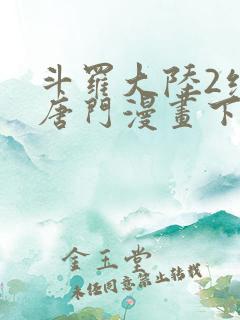 斗羅大陸2
唐門漫畫下
金玉堂
未經同意禁止轉載